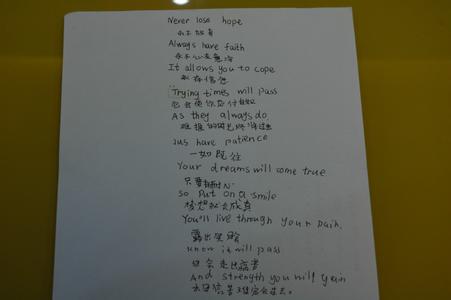 Never lose hope
永不放弃
Always have faith
永不心灰意冷
It allows you to cope
永存信念
Trying times will pass
它会使你应付自如
As they always do
难捱的时光终将过去
Jus have patience
一如既往
Your dreams will come true
只要有耐心
So put on a smile
梦想就会成真
You'll live through your pain.
露出笑脸
know it will pass
你会走出痛苦
And strength you will gain